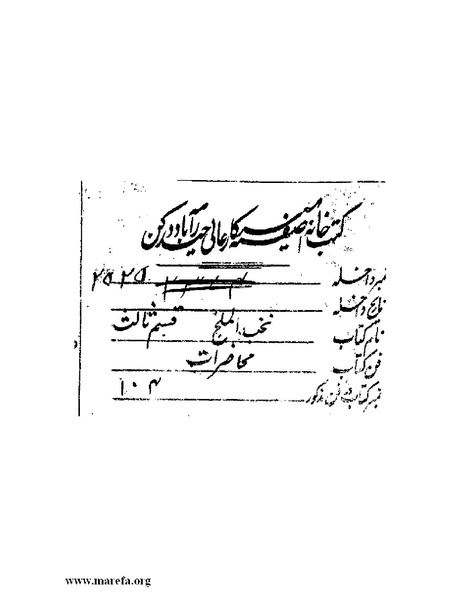 کتب خانہ آصفیہ سرکار عالی حیدرآباد دکن
نمبر داخلہ ۲۵۲۵
تاریخ داخلہ
نام کتاب نخب الملح قسم ثالث
فن کتاب محاضرات
نمبر کتاب در فن مذکور ۱۰۴
www.marefa.org